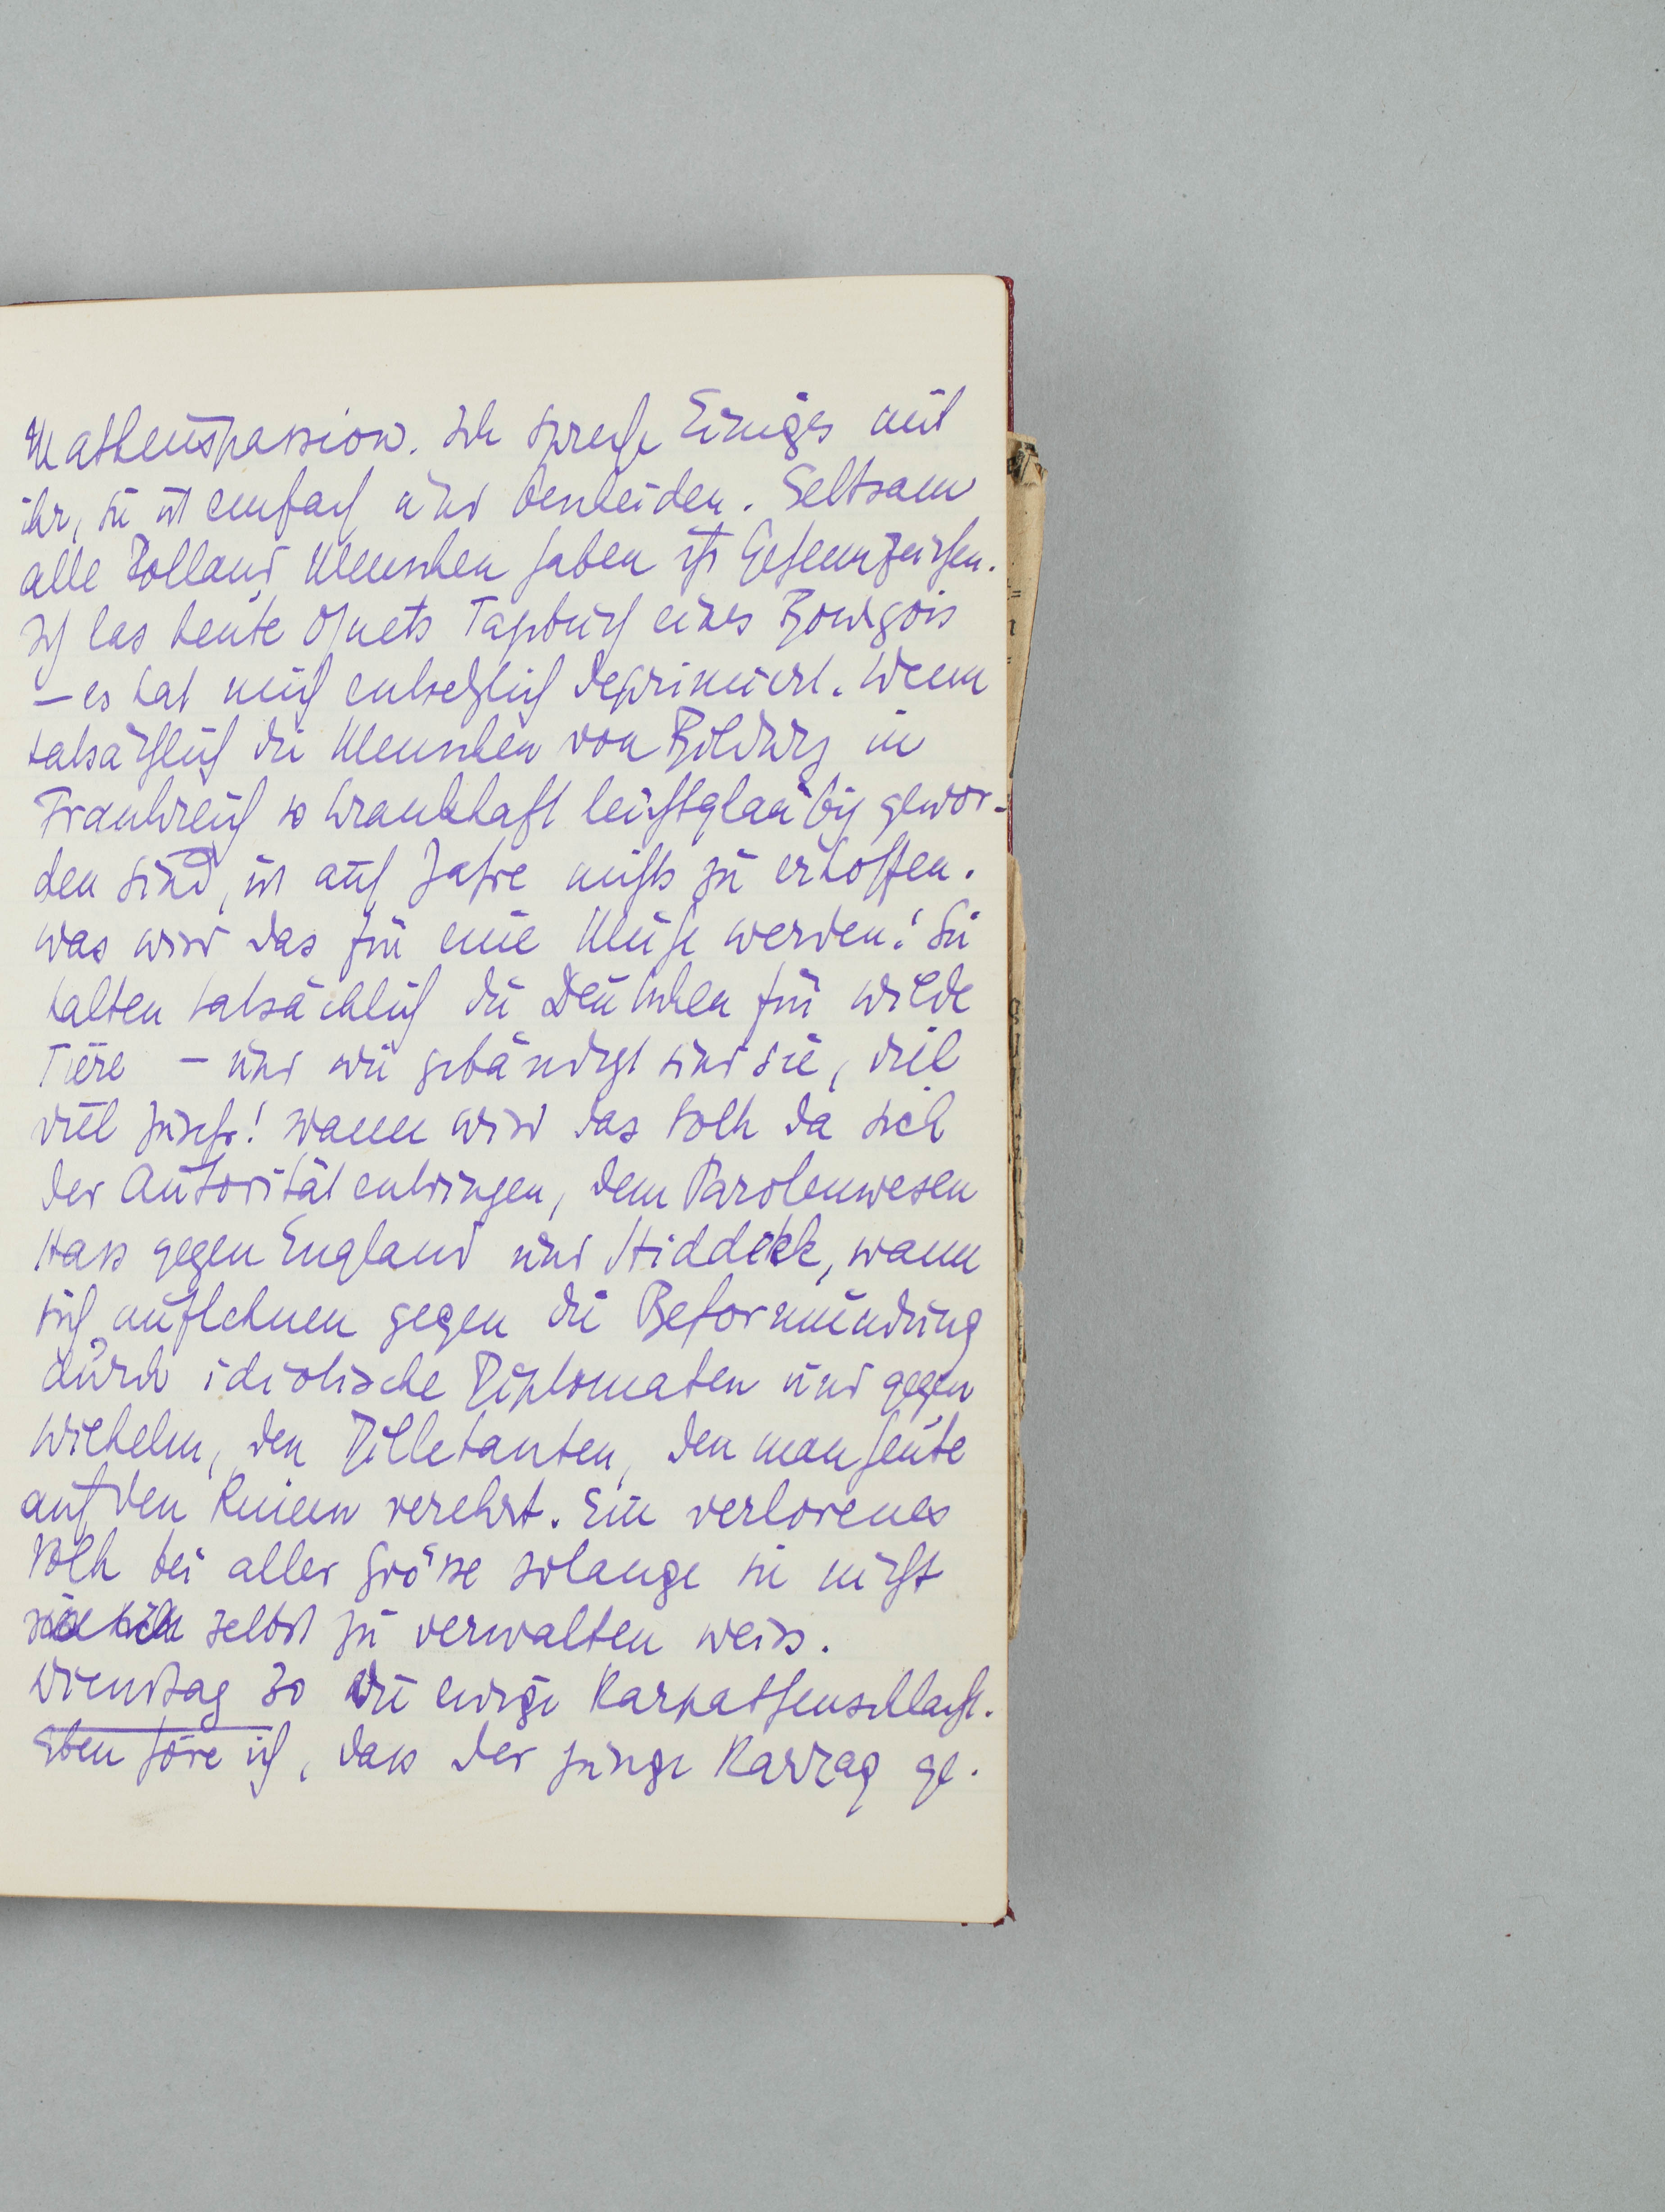 Matheuspassion. Ich spreche Einiges mit
ihr, sie ist einfach und bescheiden. Seltsam
alle Rolland Menschen haben ihr Geheimzeichen.
Ich las heute Ohnets Tagebuch eines Bourgois
– es hat mich entsetzlich deprimiert. Wenn
tatsächlich die Menschen von Bildung in
Frankreich so krankhaft leichtgläubig gewor-
den sind, ist auf Jahre nichts zu erhoffen.
Was wird das für eine Mühe werden! Sie
halten tatsächlich die Deutschen für wilde
Tiere – und wie gebändigt sind sie, viel
viel zu sehr! Wann wird das Volk da sich
der Autorität entringen, dem Parolenwesen
Hass gegen England und Hiddekk, wann
sich auflehnen gegen die Beformundung
durch idiotische Diplomaten und gegen
Wilhelm, den Dilletanten, den man heute
auf den Knieen verehrt. Ein verlorenes
Volk bei aller Grösse solange sie nicht
sich selbst zu verwalten weiss.
Dienstag 30 Die ewige Karpathenschlacht.
Eben höre ich, dass der junge Karzag ge-